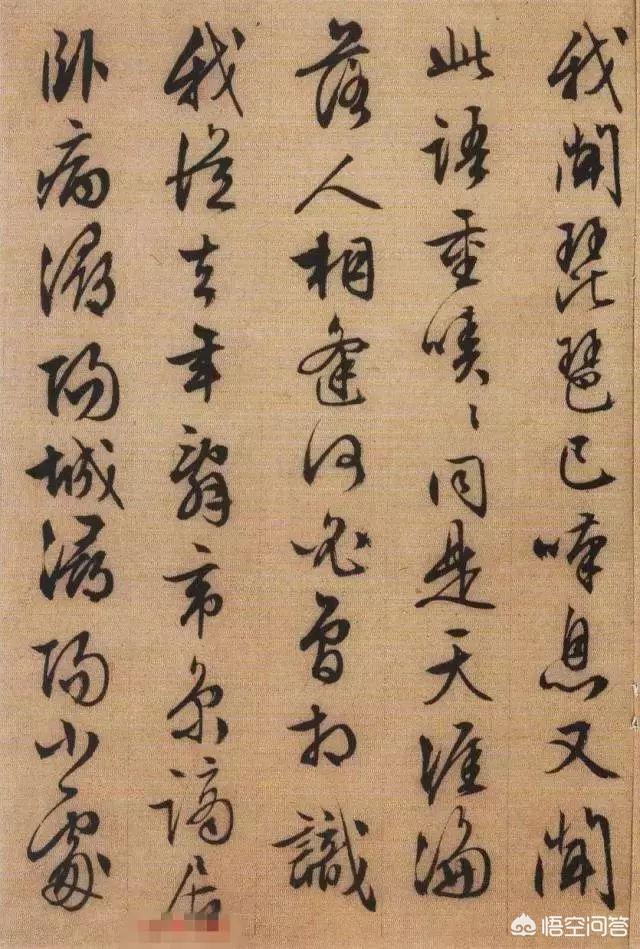 我聞琵琶已嘆息又聞
此語重唧〻同是天涯淪
落人相逢何必曾相識
我從去年辭帝京謫居
卧病潯陽城潯陽小處
悟空问答